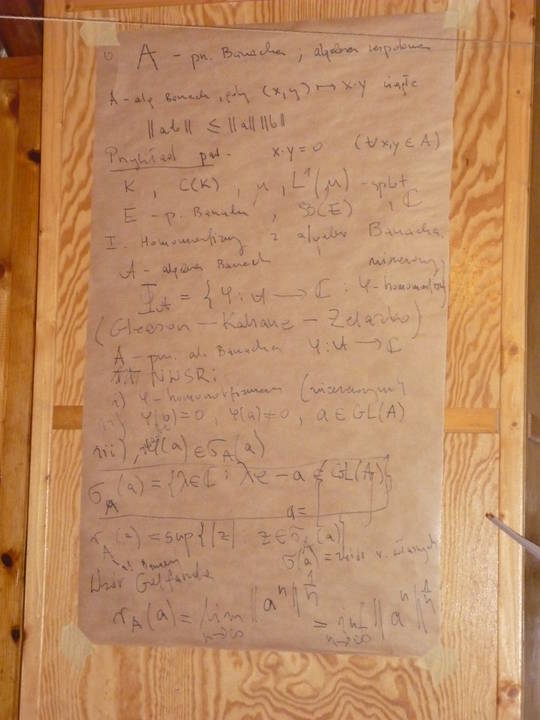 A - pn. Banacha, algebra zespolona
A - alg. Banach, gdy (x,y) ↦ x·y ciągłe
||ab|| ≤ ||a|| ||b||
Przykład pat. x·y=0 (∀x,y ∈ A)
K, C(K), μ, L¹(μ) - splot
E - p. Banacha, B(E), ℂ
I. Homomorfizmy z algebr Banacha
A - algebra Banach niezerowy
Φ_A = {φ: A → ℂ : φ - homomorfizm
(Gleason - Kahane - Żelazko)
A - pn. al. Banacha φ: A → ℂ
NWSR:
i) φ - homomorfizmem (niezerowym)
φ(0)=0, φ(a)≠0, a ∈ GL(A)
iii) φ(a) ∈ σ_A(a)
σ_A(a) = {λ∈ℂ : λe - a ∉ GL(A)}
a =
r_A(a) = sup{|z| : z∈σ_A(a)}
al. Banach σ(a) = zbiór w. własnych
Wzór Gelfanda
r_A(a) = lim_{n→∞} ||aⁿ||^{1/n} = inf_{n→∞} ||aⁿ||^{1/n}